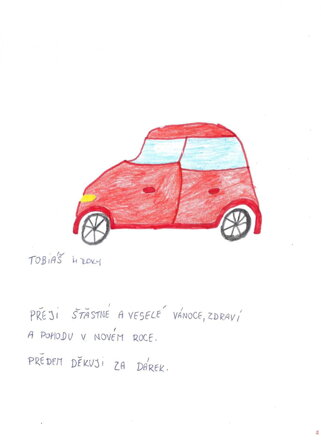 TOBIÁŠ 4 ROKY
PŘEJI ŠŤASTNÉ A VESELÉ VÁNOCE, ZDRAVÍ
A POHODU V NOVÉM ROCE.
PŘEDEM DĚKUJI ZA DÁREK.